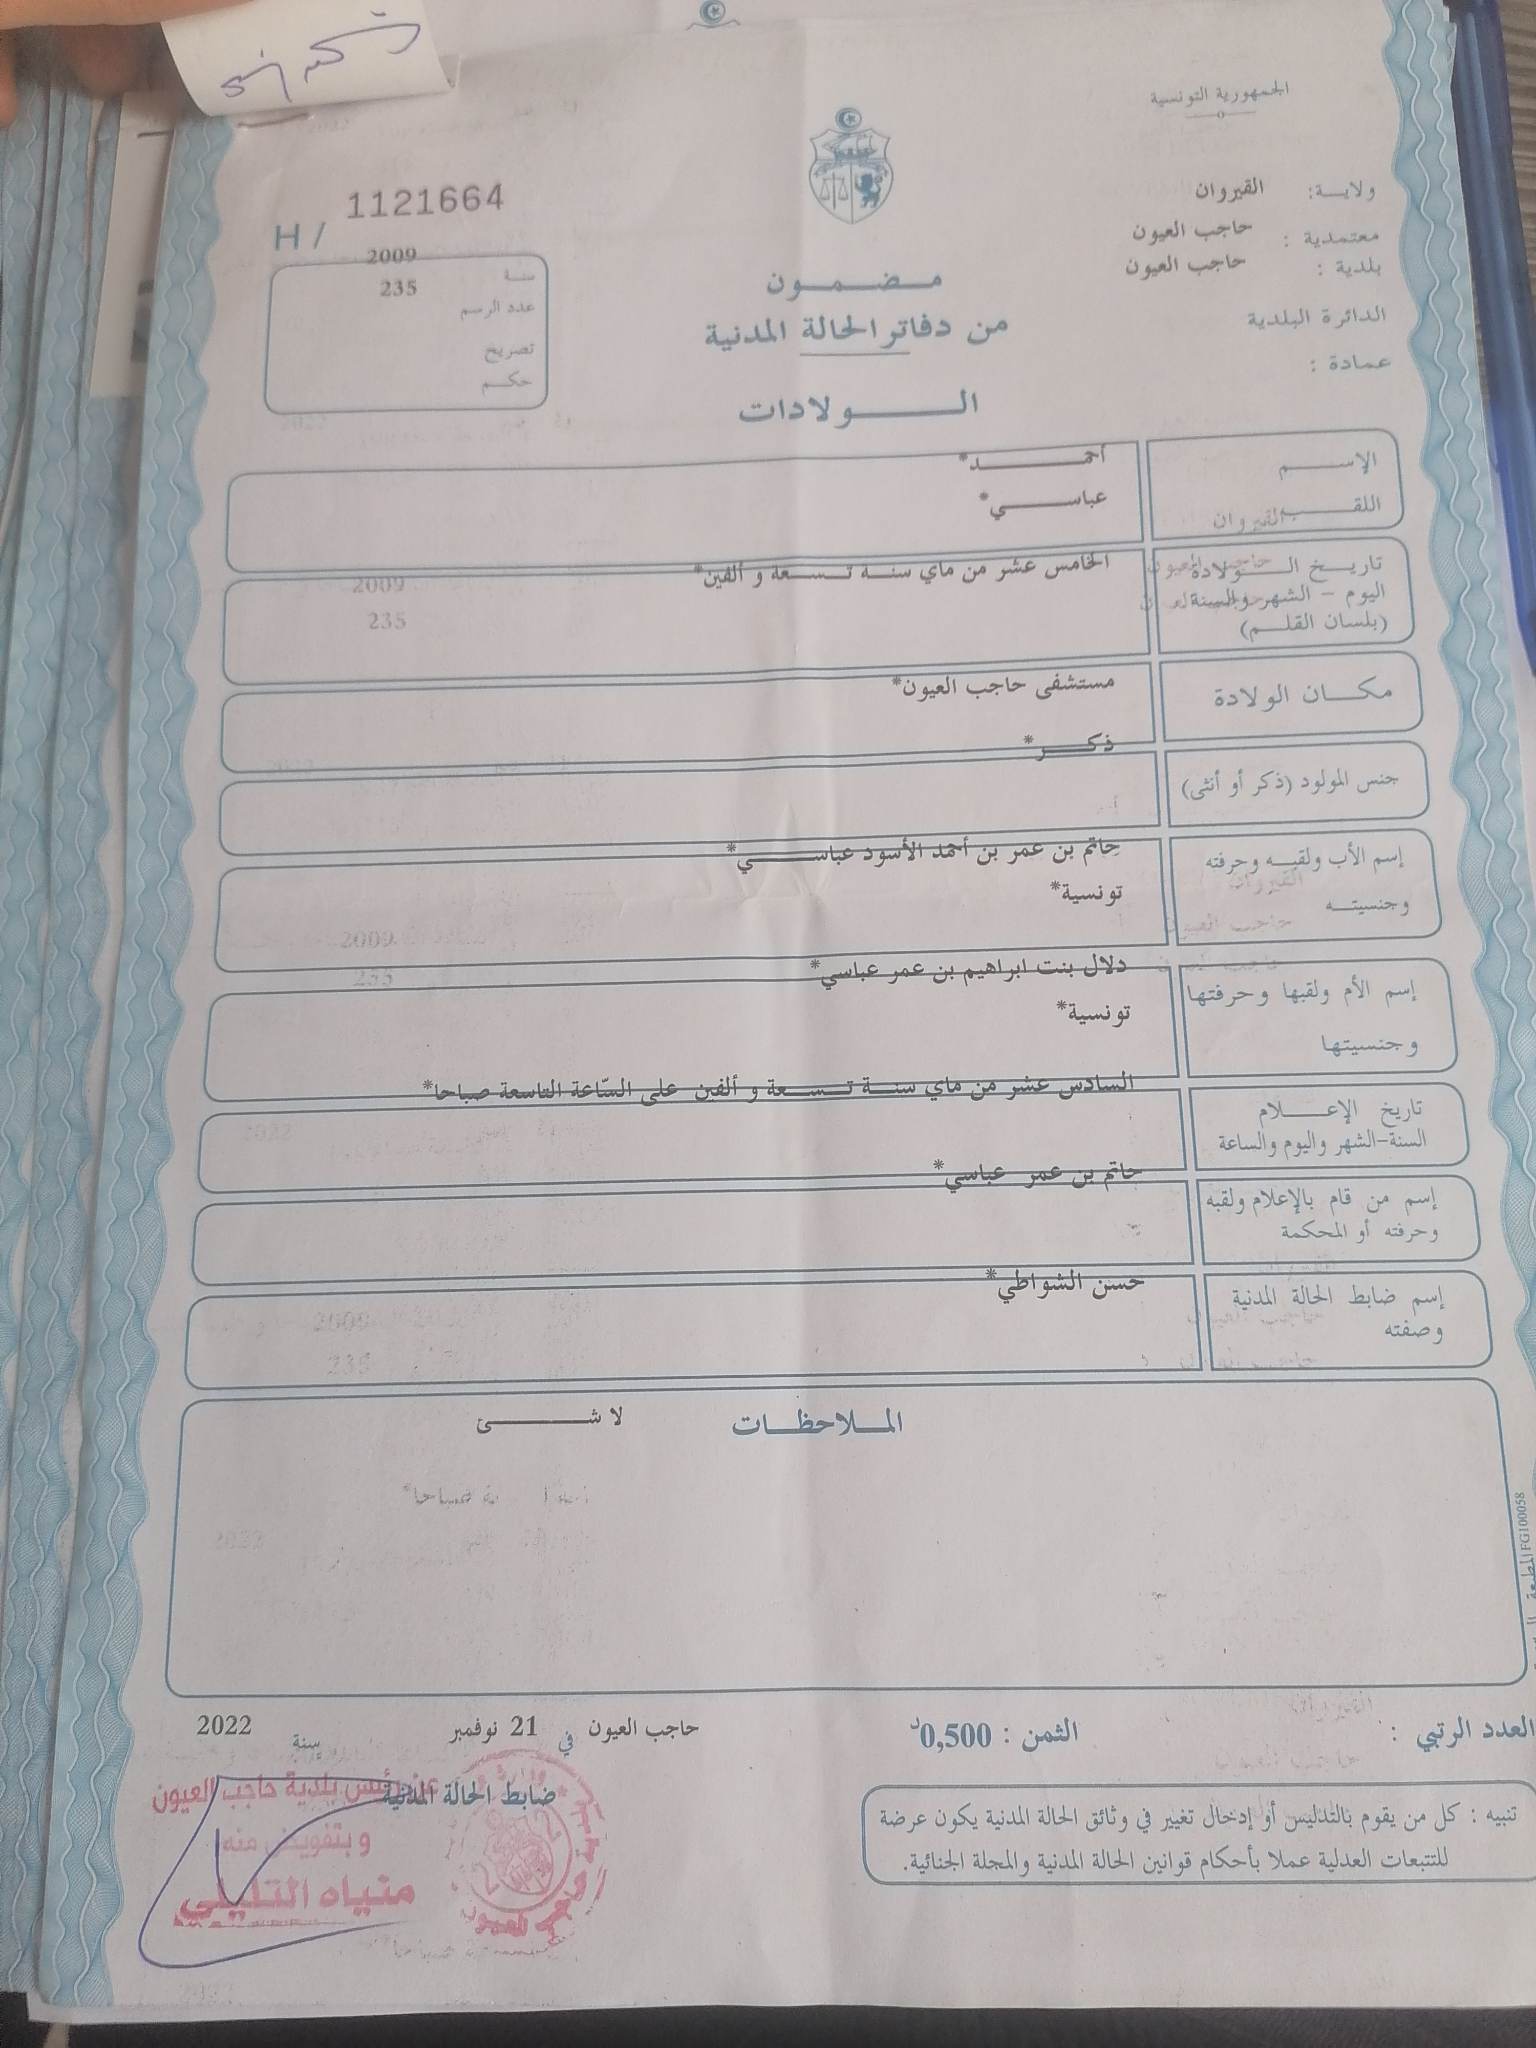 الجمهورية التونسية
ولايـــة: القيروان
معتمدية : حاجب العيون
بلدية : حاجب العيون
الدائرة البلدية
عمادة :
H / 1121664
سنة 2009
عدد الرسم 235
تصريح
حكم
مـضـمـون
من دفاتر الحالة المدنية
الـولادات
الإسـم أحمـد*
اللقـب عباسـي*
تاريخ الـولادة الخامس عشر من ماي سنـة تـسـعة و ألفين*
اليوم - الشهر والسنة
(بلسان القلـم)
مكـان الولادة مستشفى حاجب العيون*
جنس المولود (ذكر أو أنثى) ذكـر*
إسم الأب ولقبـه وحرفته حاتم بن عمر بن أحمد الأسود عباسـي*
وجنسيتـه تونسية*
إسم الأم ولقبها وحرفتها دلال بنت ابراهيم بن عمر عباسي*
وجنسيتها تونسية*
تاريخ الإعـلام السادس عشر من ماي سنـة تـسـعة و ألفين على السّاعة التاسعة صباحا*
السنة-الشهر واليوم والساعة
إسم من قام بالإعلام ولقبه حاتم بن عمر عباسي*
وحرفته أو المحكمة
إسم ضابط الحالة المدنية حسن الشواطي*
وصفته
المـلاحظـات لا شـئ
العدد الرتبي :
الثمن : 0,500د
حاجب العيون في 21 نوفمبر سنة 2022
ضابط الحالة المدنية
عن رئيس بلدية حاجب العيون
وبتفويض منه
التليلي
تنبيه : كل من يقوم بالتدليس أو إدخال تغيير في وثائق الحالة المدنية يكون عرضة
للتتبعات العدلية عملا بأحكام قوانين الحالة المدنية والمجلة الجنائية.
FG100058